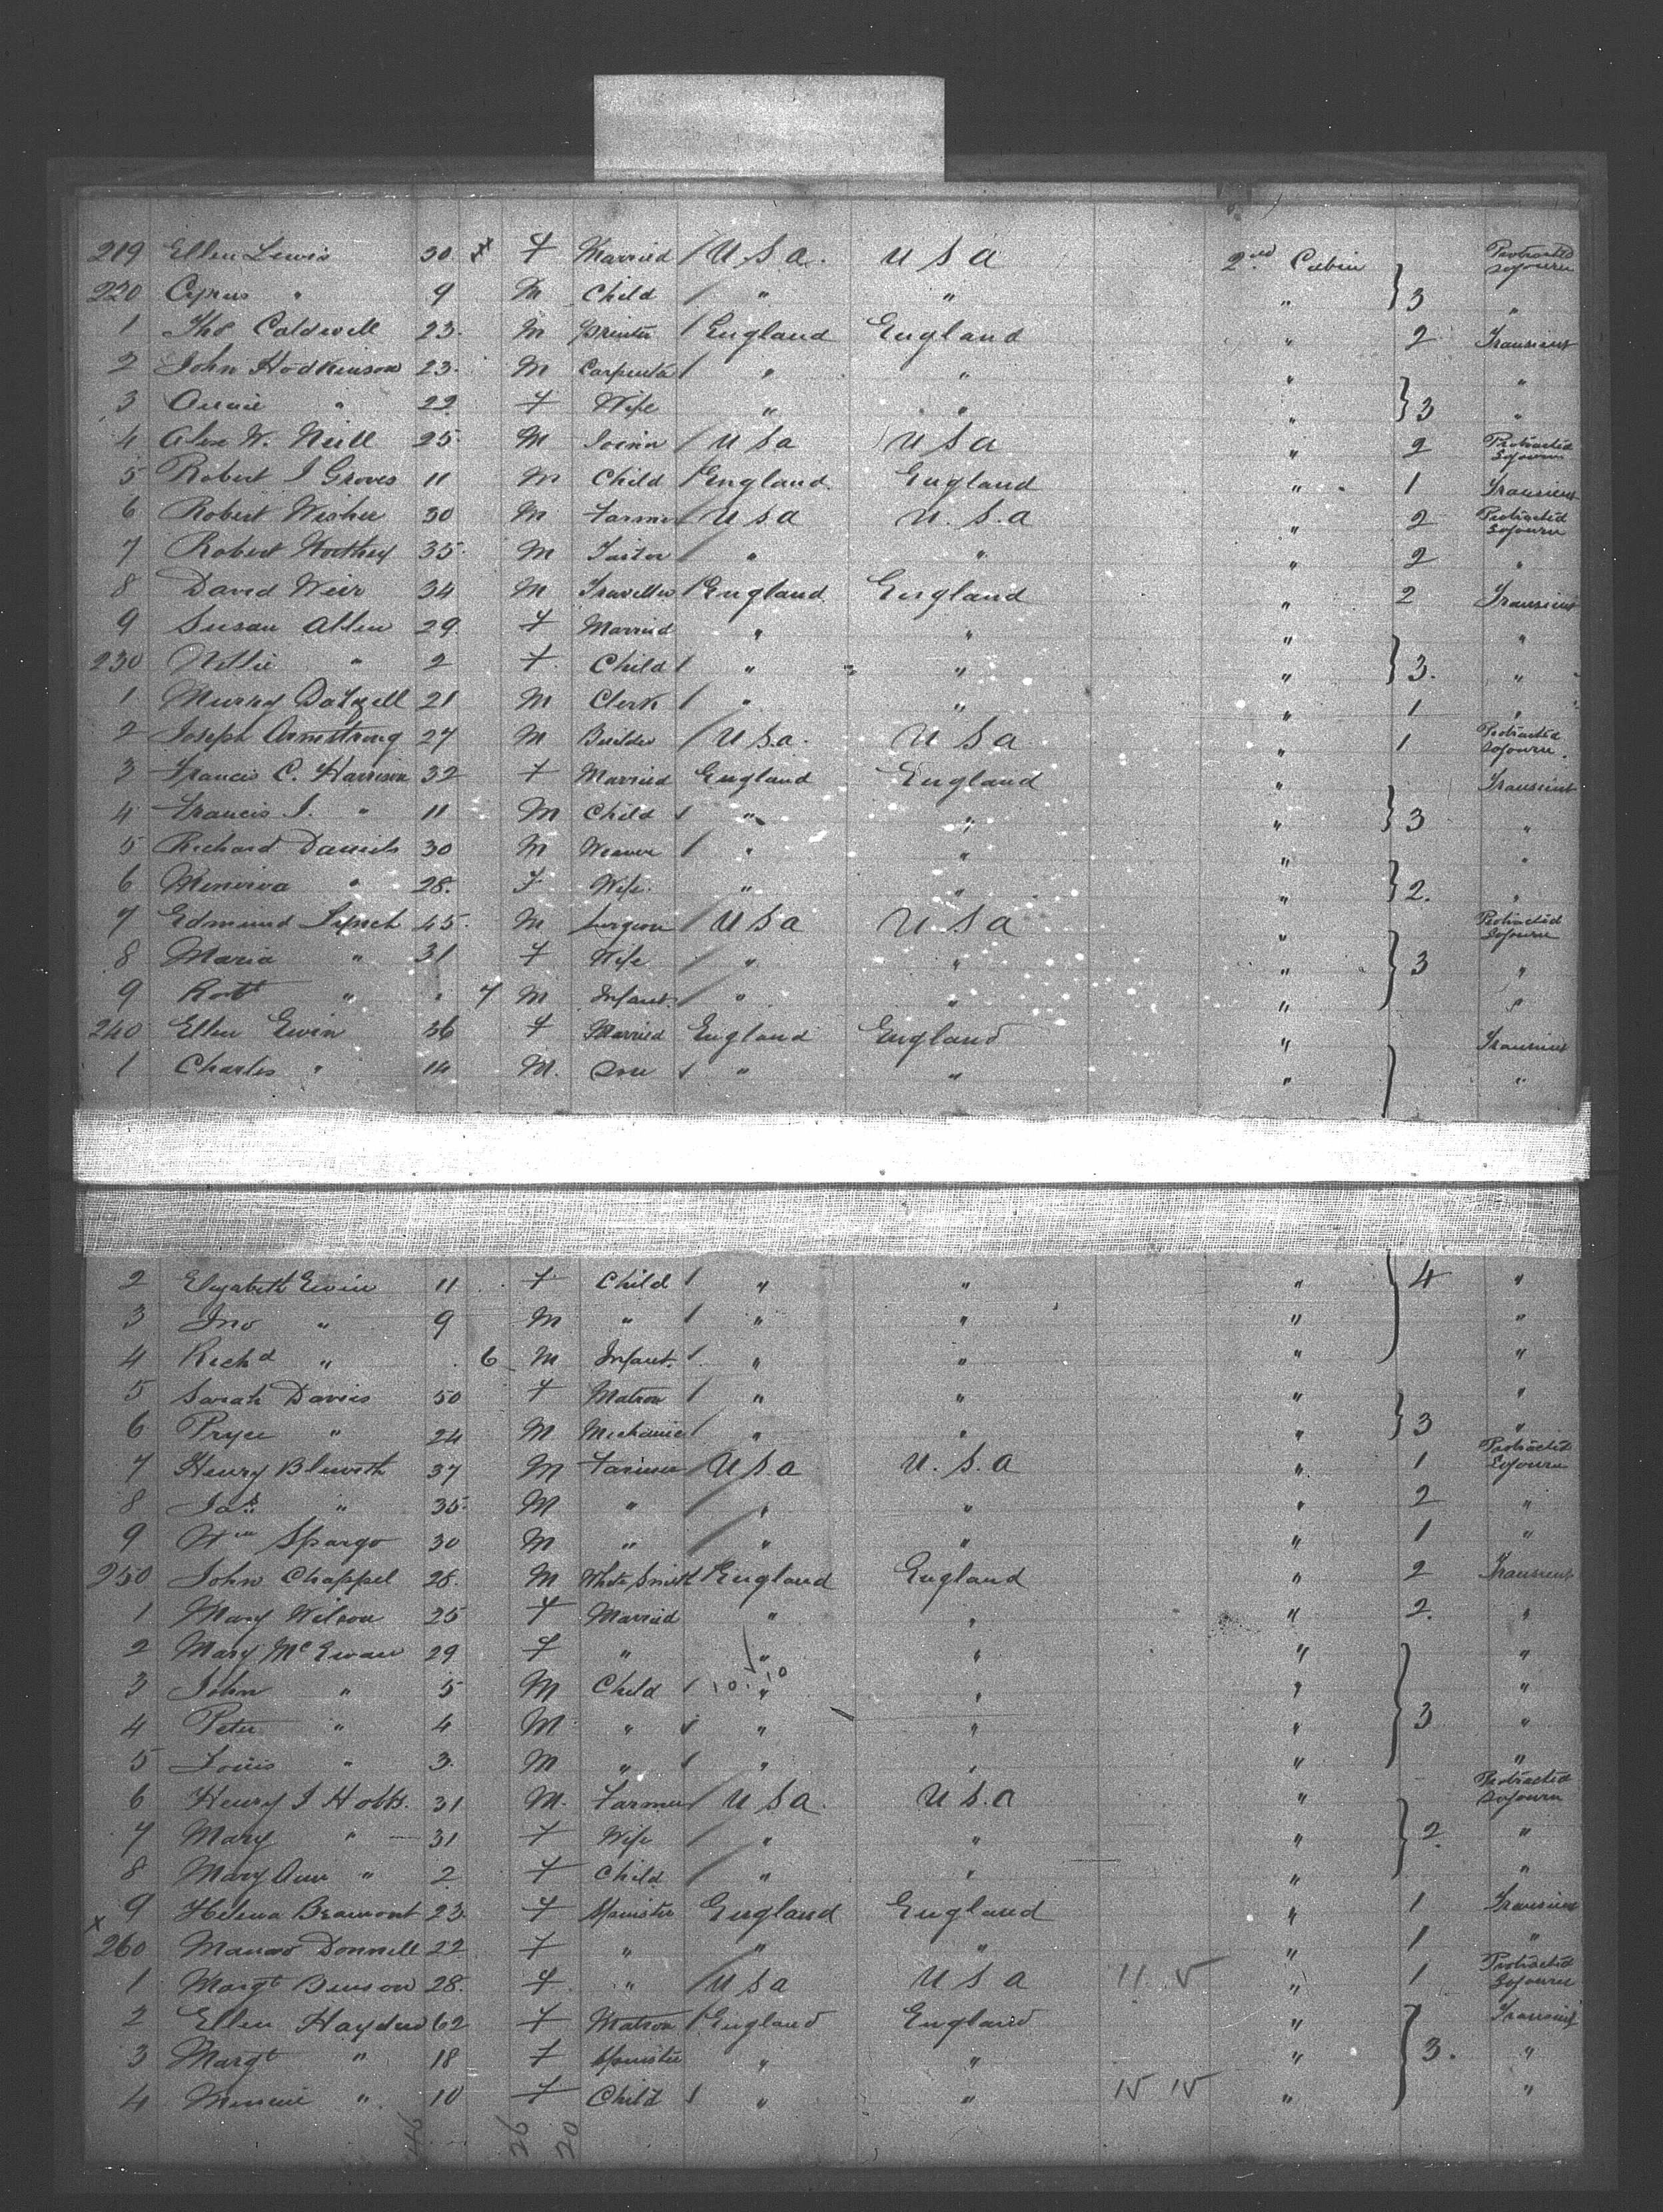 219 Ellen Lewis 30 F Married U S a. U S a 2nd Cabin Protracted Sojourn
220 Cyrus " 9 M Child " " " 3 "
1 Thos Caldwell 23. M Printer England England " 2 Transient
2 John Hodkinson 23. M Carpenter " " " "
3 Annie " 22 F Wife " " " 3 "
4 Alex W. Neill 25 M Joiner U S a U S a " 2 Protracted Sojourn
5 Robert J Groves 11 M Child England England " 1 Transient
6 Robert Wisher 30 M Farmer U S a U. S. a " 2 Protracted Sojourn
7 Robert 35 M " " " 2 "
8 David Weir 34 M Traveller England England " 2 Transient
9 Susan Allen 29 F Married " " " "
230 Nellie " 2 F. Child " " " 3. "
1 Murray Dalzell 21 M Clerk " " " 1 "
2 Joseph Armstrong 27 M Builder U S a. U S a " 1 Protracted Sojourn.
3 Francis C. Harrison 32 F Married England England " Transient
4 Francis J. " 11 M Child " " " 3 "
5 Richard Daniels 30 M Weaver " " " "
6 Minerva " 28. F Wife. " " " 2. "
7 Edmund Lynch 45 M Surgeon U S a U S a " Protracted Sojourn
8 Maria " 31 F Wife " " " 3 "
9 Robt " 7 M Infant. " " " "
240 Ellen Ewin 36 F Married England England " Transient
1 Charles " 14 M. " " " "
2 Elizabeth Ewin 11 F Child " " " 4 "
3 Jno " 9 M " " " " "
4 Richd " 6 M Infant. " " " "
5 Sarah Davies 50 F Matron " " " "
6 Pryce " 24 M Mechanic " " " 3 "
7 Henry Blewith 37 M Farmer U S a U. S. a " 1 Protracted Sojourn
8 Jas " 35. M " " " " 2 "
9 Wm Spargo 30 M " " " " 1 "
250 John Chappel 28. M White Smith England England " 2 Transient
1 Mary Wilson 25 F Married " " " 2. "
2 Mary McEwan 29 F " " " " "
3 John " 5 M Child 10.10 " " " "
4 Peter " 4 M " " " " 3 "
5 Louis " 3. M " " " " "
6 Henry J Hobbs. 31 M. Farmer U S a. U S. a " Protracted Sojourn
7 Mary " 31 F Wife " " " 2. "
8 Mary Ann " 2 F Child " " " "
9 Helena Beamont 23. F Spinster England England " 1 Transient
x 260 Donnell 22 F " " " " 1 "
1 Margt Benson 28. F " U S a U S a 11 5 " 1 Protracted Sojourn
2 Ellen Hayden 62 F Matron England England " Transient
3 Margt " 18 F Spinster " " " 3. "
4 Minnie " 10 F Child " " 15 15 " "
46 26 20